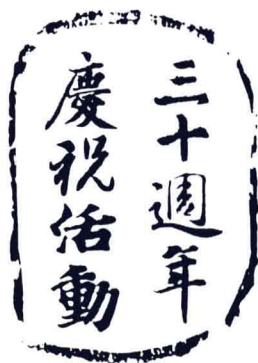 三十週年
慶祝活動